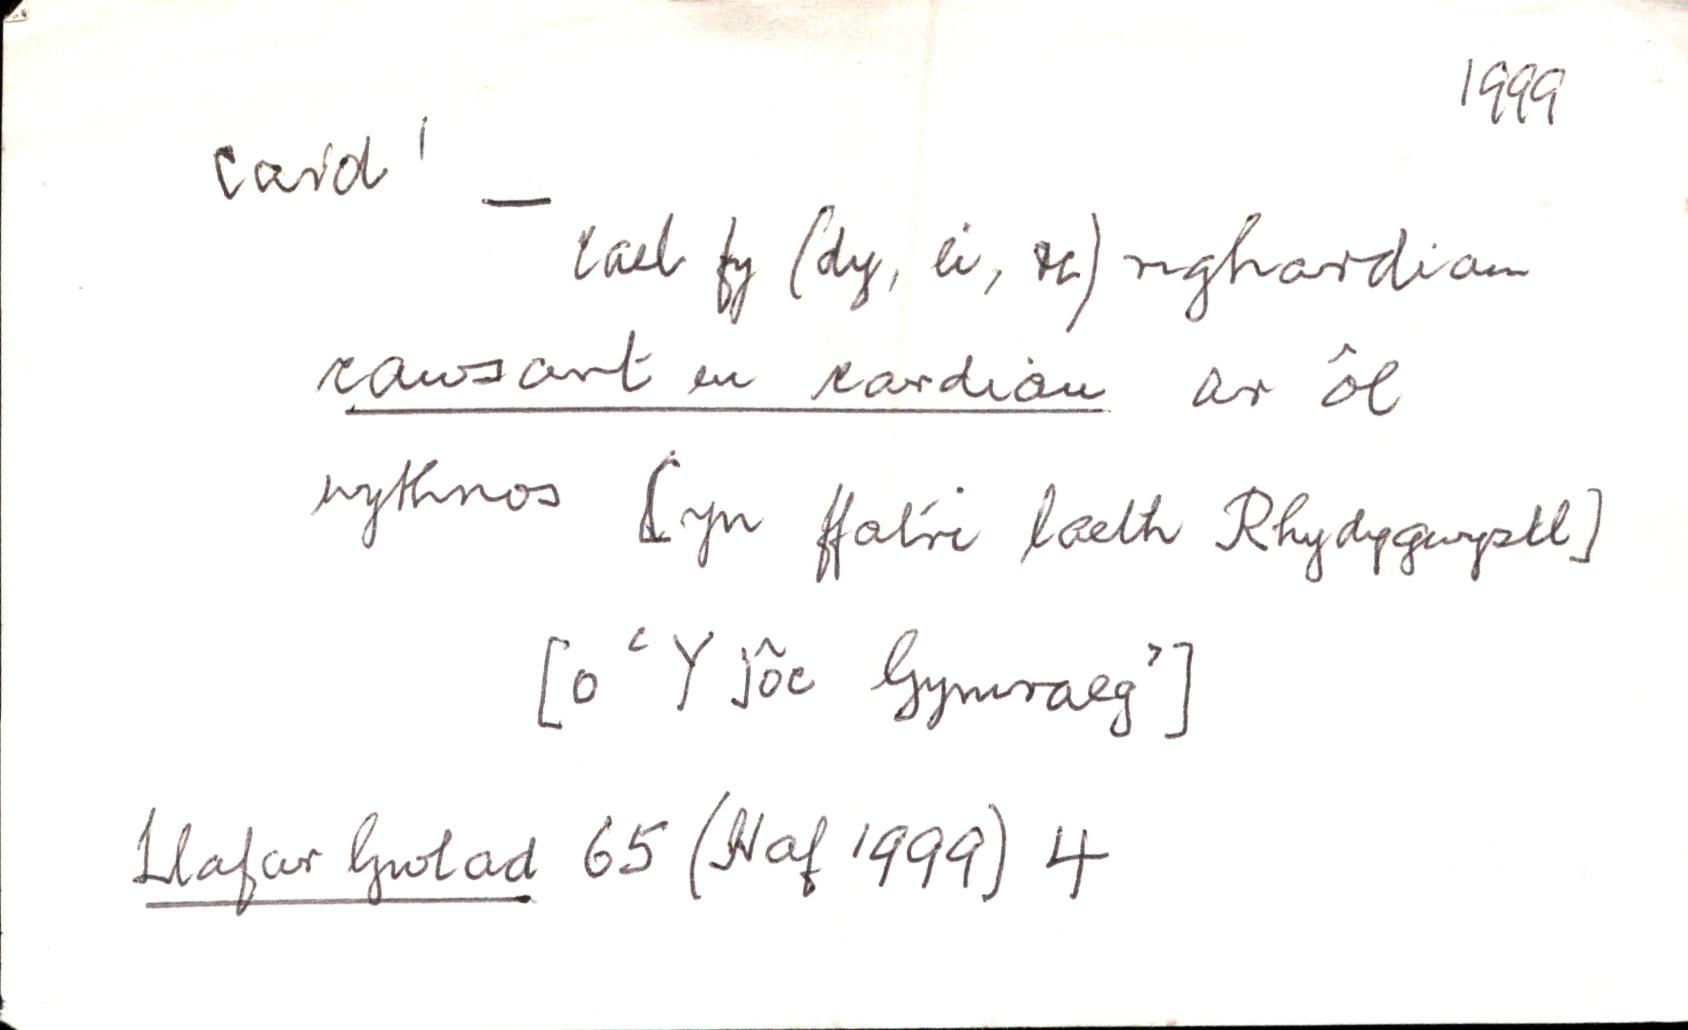 1999
card¹ —
cael fy (dy, ei, &c) nghardiau
cawsant eu cardiau ar ôl
wythnos [yn ffatri laeth Rhydygwystl]
[o ‘Y Jôc Gymraeg’]
Llafar Gwlad 65 (Haf 1999) 4